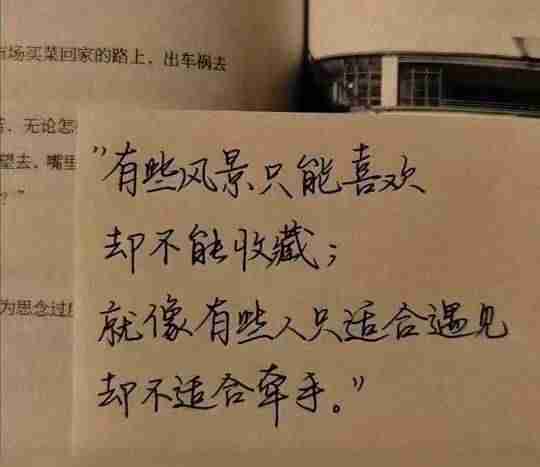 市场买菜回家的路上，出车祸去
苦，无论怎
望去，嘴里
？”
为思念过
"有些风景只能喜欢
却不能收藏；
就像有些人只适合遇见
却不适合牵手。"